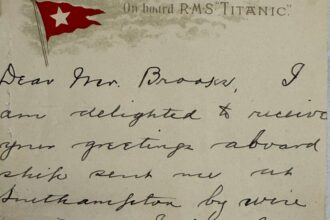 On board R.M.S "TITANIC".
Dear Mr. Brooks, I
am delighted to receive
your greetings aboard
ship sent me at
Southampton by wire